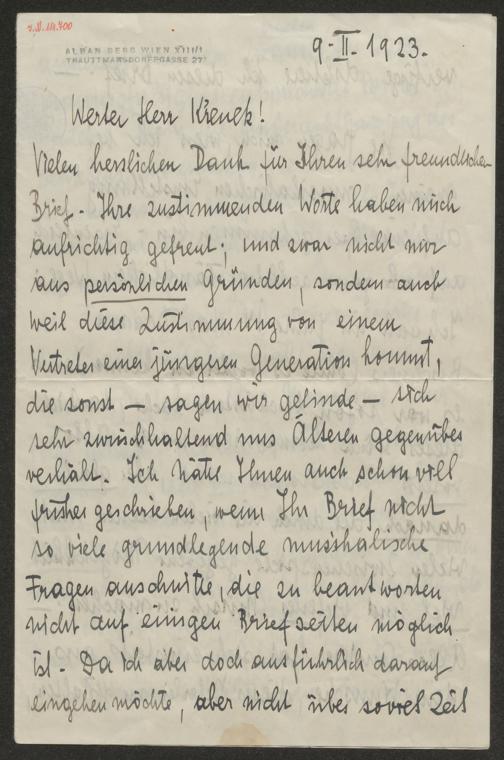 ALBAN BERG WIEN XIII/1
TRAUTTMANSDORFFGASSE 27
9.II.1923.
Werter Herr Křenek!
Vielen herzlichen Dank für Ihren sehr freundlichen
Brief. Ihre zustimmenden Worte haben mich
aufrichtig gefreut; und zwar nicht nur
aus persönlichen Gründen, sondern auch
weil diese Zustimmung von einem
Vertreter einer jüngeren Generation kommt,
die sonst — sagen wir gelinde — sich
sehr zurückhaltend uns Älteren gegenüber
verhält. Ich hätte Ihnen auch schon viel
früher geschrieben, wenn Ihr Brief nicht
so viele grundlegende musikalische
Fragen anschnitte, die zu beantworten
nicht auf einigen Briefseiten möglich
ist. Da ich aber doch ausführlich darauf
eingehen möchte, aber nicht über soviel Zeit